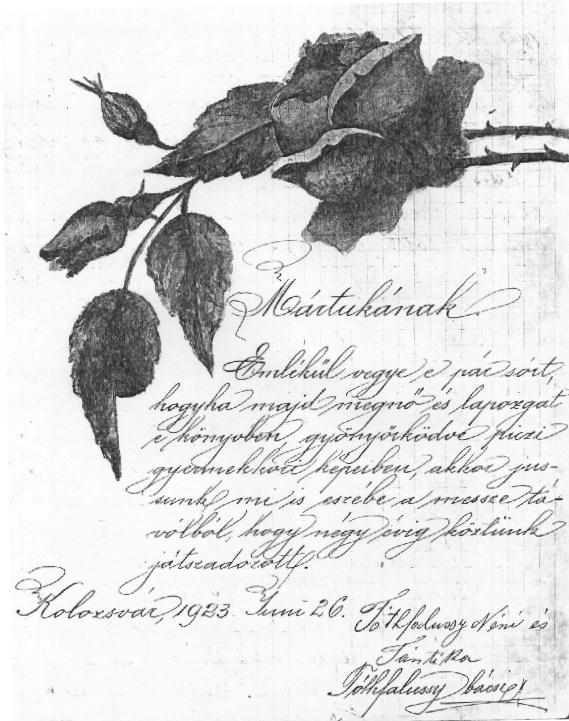 Mártukának
Emlékül vegye e pár sórt,
hogyha majd megnő és lapozgat
e könyvben, gyönyörködve piczi
gyermekkori képeiben, akkor jus-
sunk mi is eszébe a messze tá-
volból, hogy négy évig köztünk
játszadozott.
Kolozsvár, 1923. Juni 26.
Tóthfalussy Néni és
Tántika
Tóthfalussy bácsi